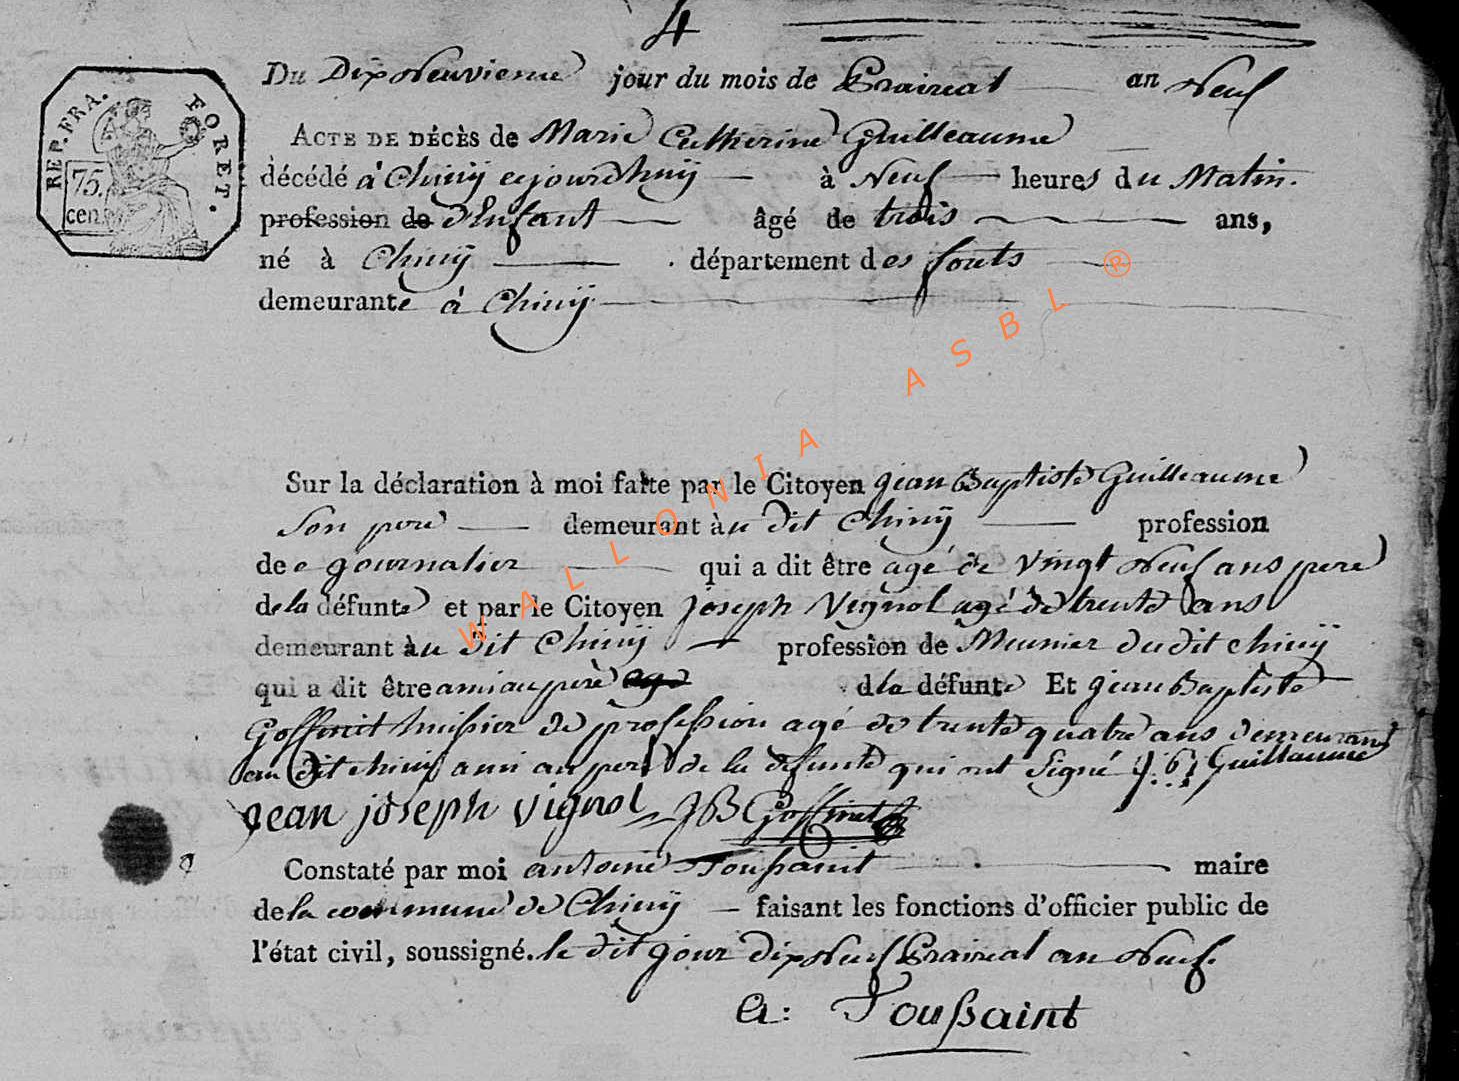 4
REP. FRA. FORET.
75.
cen.
Du Dix Neuvieme jour du mois de Praireal an Neuf
ACTE DE DÉCÈS de Marie Catherine Guilleaume
décédé à Chinÿ cejourdhuÿ à Neuf heures du Matin.
profession de d'Enfant âgé de trois ans,
né à Chinÿ département des forets
demeurante à Chinÿ
Sur la déclaration à moi faite par le Citoyen jean Baptiste Guilleaume
Son pere demeurant àu dit Chinÿ profession
de journalier qui a dit être agé de vingt Neuf ans pere
de la défunte et par le Citoyen joseph Vignol agé de trente ans
demeurant àu dit Chinÿ profession de Meunier dudit chinÿ
qui a dit être ami au père d la défunte Et jean Baptiste
Goffinet huissier de profession agé de trente quatre ans demeurant
au dit chinÿ ami au pere de la défunte qui ont Signé J. B. Guillaume
jean joseph vignol JB Goffinet
Constaté par moi antoine Toussaint maire
de la commune de Chinÿ faisant les fonctions d'officier public de
l'état civil, soussigné. le dit jour dix Neuf Praireal an Neuf.
A: Toussaint
WALLONIA ASBL ®